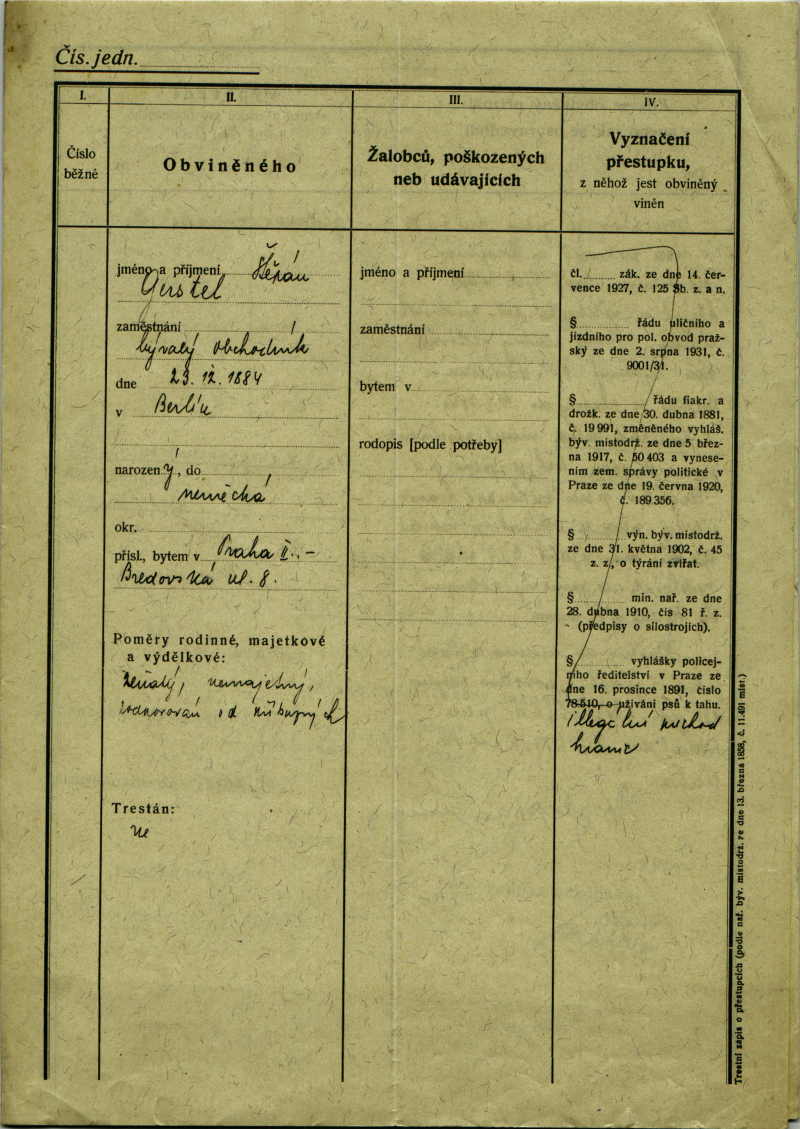 Čís. jedn.
I.
II.
III.
IV.
Číslo
běžné
Obviněného
Žalobců, poškozených
neb udávajících
Vyznačení
přestupku,
z něhož jest obviněný
viněn
jméno a příjmení
zaměstnání
bývalý obchodník
dne 23. 12. 1884
v Berlín
narozen ý, do
německá
okr.
přísl., bytem v Praha II., -
Bredovská ul. 8.
Poměry rodinné, majetkové
a výdělkové:
ženatý, nemajetný,
Trestán:
ne
jméno a příjmení
zaměstnání
bytem v
rodopis [podle potřeby]
čl. zák. ze dne 14. čer-
vence 1927, č. 125 Sb. z. a n.
§ řádu uličního a
jízdního pro pol. obvod praž-
ský ze dne 2. srpna 1931, č.
9001/31.
§ řádu fiakr. a
drožk. ze dne 30. dubna 1881,
č. 19 991, změněného vyhláš.
býv. místodrž. ze dne 5 břez-
na 1917, č. 50 403 a vynese-
ním zem. správy politické v
Praze ze dne 19. června 1920,
č. 189 356.
§ výn. býv. místodrž.
ze dne 31. května 1902, č. 45
z. z., o týrání zvířat.
§ min. nař. ze dne
28. dubna 1910, čís 81 ř. z.
(předpisy o silostrojích).
§ vyhlášky policej-
ního ředitelství v Praze ze
dne 16. prosince 1891, číslo
78-510, o užívání psů k tahu.
illegální přechod
hranic
Trestní zápis o přestupcích (podle nař. býv. místodrž. ze dne 13. března 1858, č. 11.491 míst.)